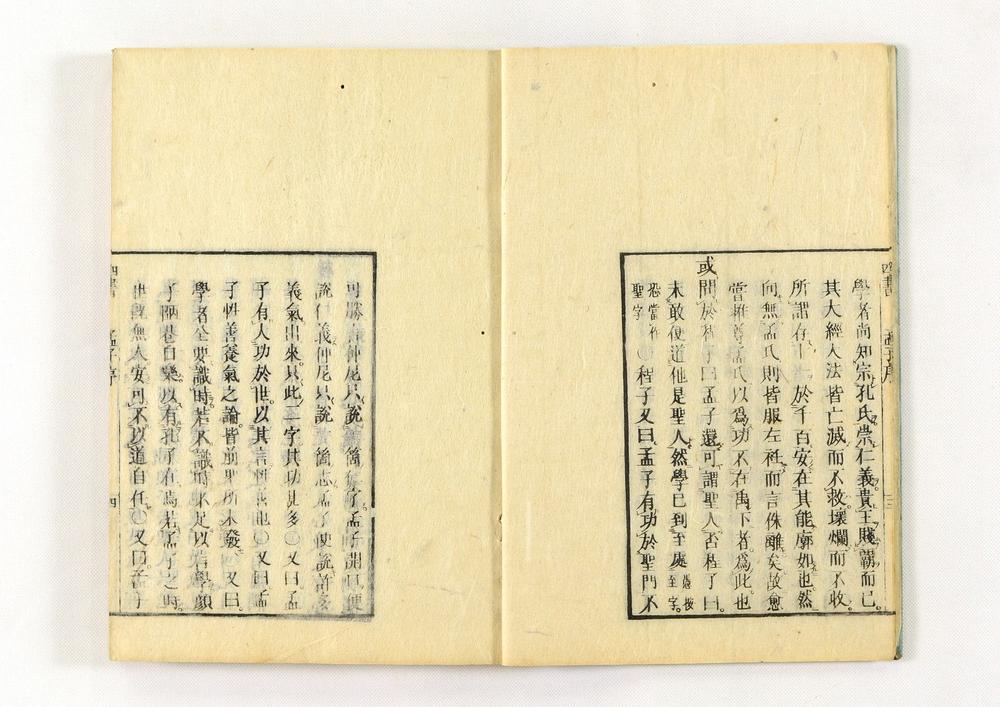 學者尚知宗孔氏崇仁義貴王賤霸而已
其大經大法皆亡滅而不救壞爛而不收
所謂存十一於千百安在其能廓如也然
向無孟氏則皆服左衽而言侏離矣故愈
嘗推尊孟氏以爲功不在禹下者爲此也
或問於程子曰孟子還可謂聖人否程子曰
未敢便道他是聖人然學已到至處愚按至字
恐當作聖字○程子又曰孟子有功於聖門不
四書
孟子序
三
可勝言仲尼只說一箇仁字孟子開口便
說仁義仲尼只說一箇志孟子便說許多
養氣出來只此二字其功甚多○又曰孟
子有大功於世以其言性善也○又曰孟
子性善養氣之論皆前聖所未發○又曰
學者全要識時若不識時不足以言學顏
子陋巷自樂以有孔子在焉若孟子之時
世旣無人安可不以道自任○又曰孟子
四書
孟子序
四